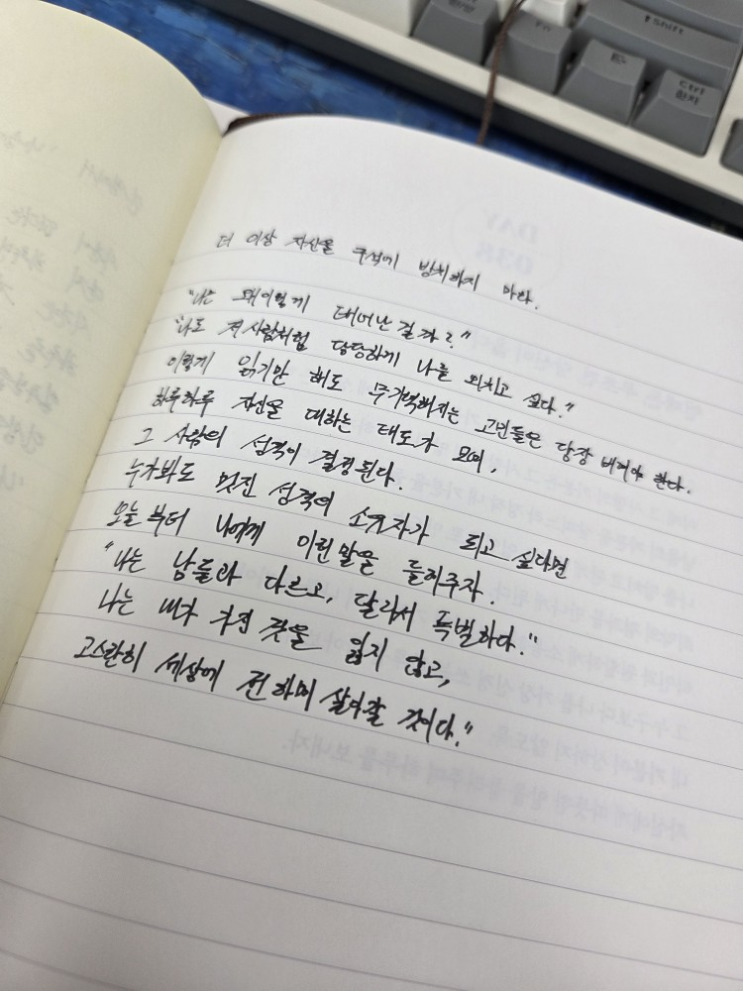 더 이상 자신을 구석에 방치하지 마라.
"나는 왜이렇게 태어난걸까?"
"나도 저 사람처럼 당당하게 나를 외치고 싶다."
이렇게 읽기만 해도 무기력해지는 고민들은 당장 버려야 한다.
하루하루 자신을 대하는 태도가 모여,
그 사람의 성격이 결정된다.
누가봐도 멋진 성격의 소유자가 되고 싶다면
오늘부터 나에게 이런말을 들려주자.
"나는 남들과 다르고, 달라서 특별하다."
나는 내가 가진 것을 잃지 않고,
고스란히 세상에 전하며 살아갈 것이다."
Shift
Fn
Ctrl
한자